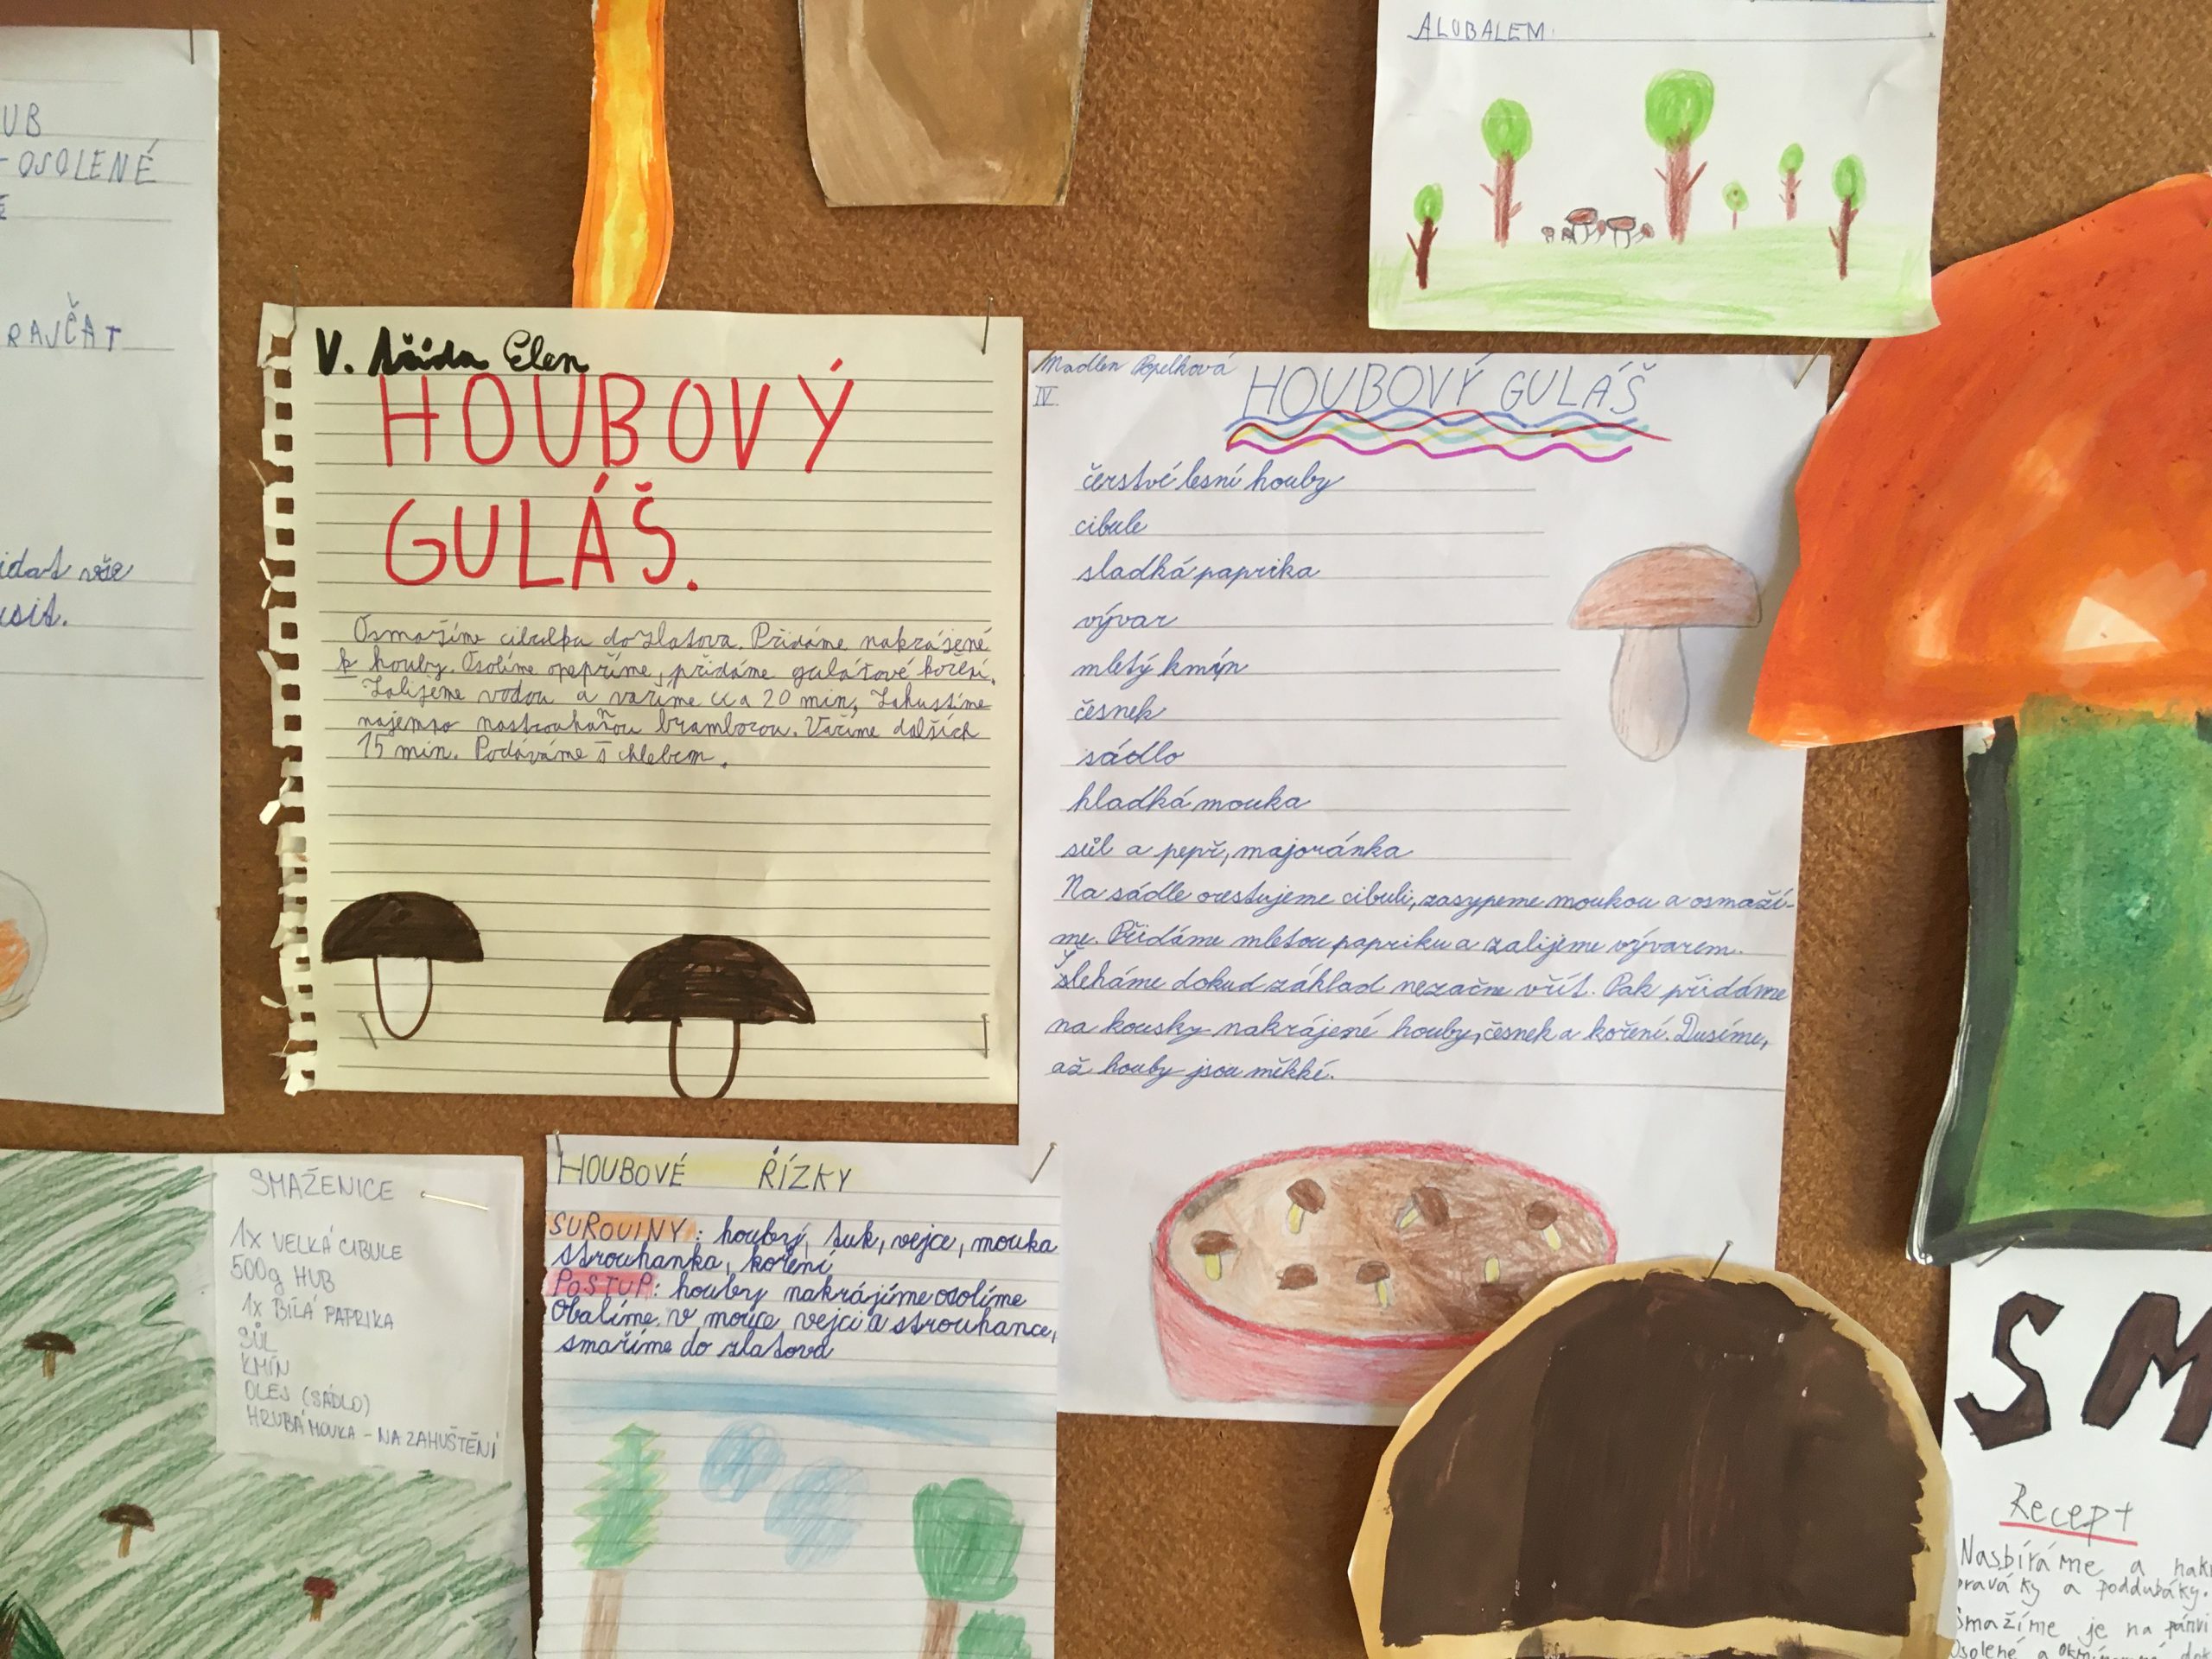 UB
-OSOLENÉ
RAJČAT
idat vše
usit.
ALOBALEM.
V. třída Elen
HOUBOVÝ
GULÁŠ.
Osmažíme cibulku dozlatova. Přidáme nakrájené
houby. Osolíme opepříme, přidáme gulášové koření.
Zalijeme vodou a vaříme cca 20 min, Zahustíme
najemno nastrouhaňou bramborou. Vaříme dalších
15 min. Podáváme s chlebem.
Madlen Popelková
IV.
HOUBOVÝ GULÁŠ
čerstvé lesní houby
cibule
sladká paprika
vývar
mletý kmín
česnek
sádlo
hladká mouka
sůl a pepř, majoránka
Na sádle orestujeme cibuli, zasypeme moukou a osmaží-
me. Přidáme mletou papriku a zalijeme vývarem.
Šleháme dokud základ nezačne vřít. Pak přidáme
na kousky nakrájené houby, česnek a koření. Dusíme,
až houby jsou měkké.
SMAŽENICE
1X VELKÁ CIBULE
500g HUB
1X BÍLÁ PAPRIKA
SŮL
KMÍN
OLEJ (SÁDLO)
HRUBÁ MOUKA - NA ZAHUŠTĚNÍ
HOUBOVÉ ŘÍZKY
SUROVINY: houby, tuk, vejce, mouka
strouhanka, koření
POSTUP: houby nakrájíme osolíme
Obalíme v mouce vejci a strouhance,
smažíme do zlatova
SM
Recept
Nasbíráme a nak
praváky a poddubáky.
Smažíme je na pánvi
Osolené a